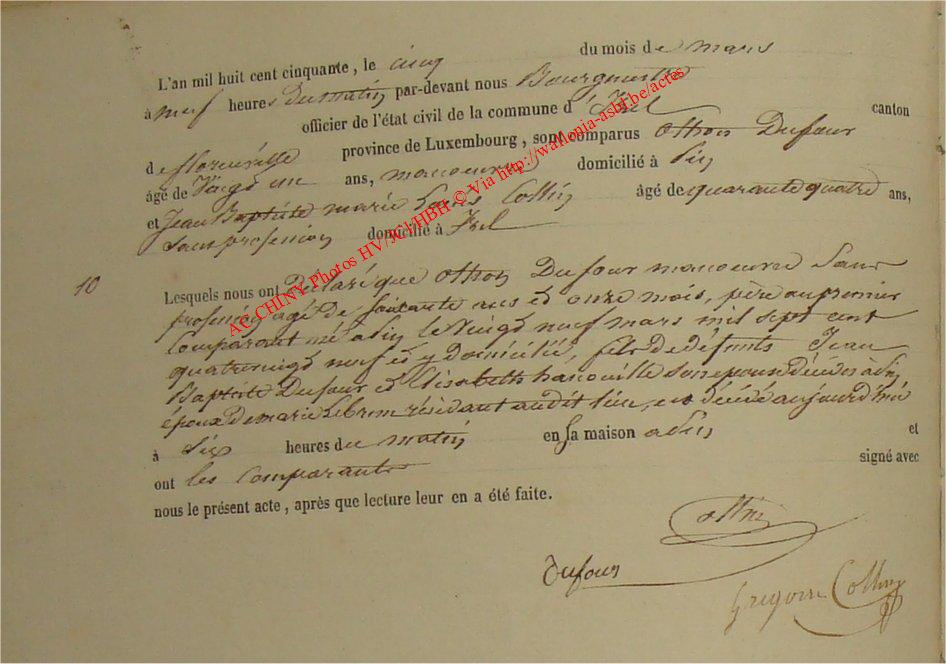 L'an mil huit cent cinquante, le cinq du mois de mars
à neuf heures du matin par-devant nous Bourgmestre
officier de l'état civil de la commune d'Izel canton
de florenville province de Luxembourg, sont comparus Othon Dufour
âgé de Vingt un ans, manoeuvre domicilié à
et Jean Baptiste marie Louis Collin âgé de quarante quatre ans,
Sans profession domicilié à Izel
10
Lesquels nous ont Déclaré que Othon Dufour manoeuvre Sans
profession agé de Soixante ans et onze mois, père au premier
Comparant né le Vingt neuf mars mil sept cent
quatre neuf et y domicilié, fils de défunts Jean
Baptiste Dufour et Elisabeth hanouille Son epouse décédés
époux de marie Lebrun résidant audit lieu, est décédé aujourd'hui
à Six heures du matin en Sa maison et
ont les Comparants signé avec
nous le présent acte, après que lecture leur en a été faite.
Collin
Dufour
Gregoire Collin
AC CHINY Photos HV/JCl/HBH © Via http://wallonia-asbl.be/actes